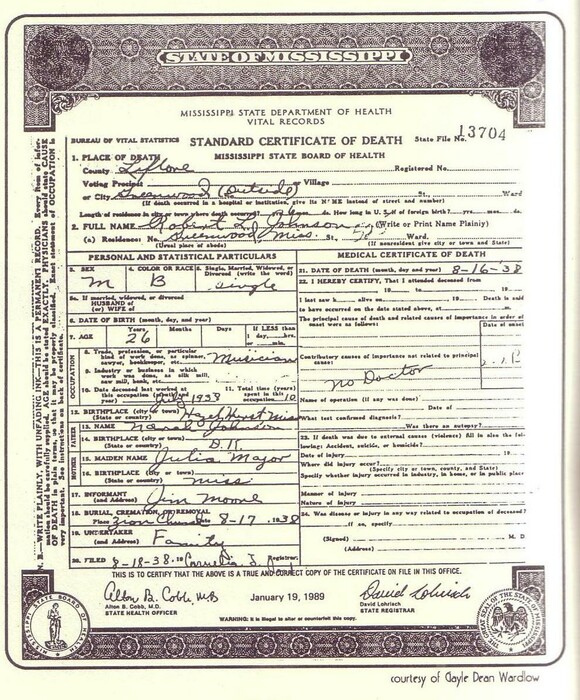 STATE OF MISSISSIPPI
MISSISSIPPI STATE DEPARTMENT OF HEALTH
VITAL RECORDS
BUREAU OF VITAL STATISTICS STANDARD CERTIFICATE OF DEATH State File No. 13704
1. PLACE OF DEATH MISSISSIPPI STATE BOARD OF HEALTH
County Leflore Registered No.
Voting Precinct or Village
or City Greenwood (Outside) St., Ward
(If death occurred in a hospital or institution, give its NAME instead of street and number)
Length of residence in city or town where death occurred? yrs. mos. ds. How long in U. S. if of foreign birth? yrs. mos. ds.
2. FULL NAME Robert L. Johnson (Write or Print Name Plainly)
(a) Residence: No. Greenwood, Miss. St., Ward.
(Usual place of abode) (If nonresident give city or town and State)
PERSONAL AND STATISTICAL PARTICULARS
3. SEX 4. COLOR OR RACE 5. Single, Married, Widowed, or Divorced (write the word)
M B Single
5a. If married, widowed, or divorced
HUSBAND of
(or) WIFE of
6. DATE OF BIRTH (month, day, and year)
7. AGE Years Months Days If LESS than 1 day, hrs. or min.
26
OCCUPATION
8. Trade, profession, or particular kind of work done, as spinner, sawyer, bookkeeper, etc. Musician
9. Industry or business in which work was done, as silk mill, saw mill, bank, etc.
10. Date deceased last worked at this occupation (month and year) July 1938
11. Total time (years) spent in this occupation 10
12. BIRTHPLACE (city or town) Hazelhurst Miss
(State or country)
FATHER
13. NAME Johnson
14. BIRTHPLACE (city or town) D.K.
(State or country)
MOTHER
15. MAIDEN NAME Julia Major
16. BIRTHPLACE (city or town)
(State or country) Miss
17. INFORMANT Jim Moore
(and Address)
18. BURIAL, CREMATION, OR REMOVAL
Place Zion Church Date 8-17, 1938
19. UNDERTAKER Family
(and Address)
20. FILED 8-18-38, 19 Cornelia J. Registrar.
MEDICAL CERTIFICATE OF DEATH
21. DATE OF DEATH (month, day and year) 8-16-38
22. I HEREBY CERTIFY, That I attended deceased from
, 19 , to , 19
I last saw h alive on , 19 Death is said
to have occurred on the date stated above, at m.
The principal cause of death and related causes of importance in order of onset were as follows:
Date of onset
Contributory causes of importance not related to principal cause:
No Doctor
Name of operation (if any was done)
Date of
What test confirmed diagnosis? Was there an autopsy?
23. If death was due to external causes (violence) fill in also the following: Accident, suicide, or homicide?
Date of injury 19
Where did injury occur?
(Specify city or town, county, and State)
Specify whether injury occurred in industry, in home, or in public place
Manner of injury
Nature of injury
24. Was disease or injury in any way related to occupation of deceased?
If so, specify
(Signed) M. D
(Address)
N. B.—WRITE PLAINLY, WITH UNFADING INK—THIS IS A PERMANENT RECORD. Every item of information should be carefully supplied. AGE should be stated EXACTLY. PHYSICIANS should state CAUSE OF DEATH in plain terms, so that it may be properly classified. Exact statement of OCCUPATION is very important. See instructions on back of certificate.
THIS IS TO CERTIFY THAT THE ABOVE IS A TRUE AND CORRECT COPY OF THE CERTIFICATE ON FILE IN THIS OFFICE.
Alton B. Cobb, M.D. January 19, 1989 David Lohrisch
Alton B. Cobb, M.D. David Lohrisch
STATE HEALTH OFFICER STATE REGISTRAR
WARNING: It is illegal to alter or counterfeit this copy.
MISSISSIPPI STATE BOARD OF HEALTH
THE GREAT SEAL OF THE STATE OF MISSISSIPPI
courtesy of Gayle Dean Wardlow